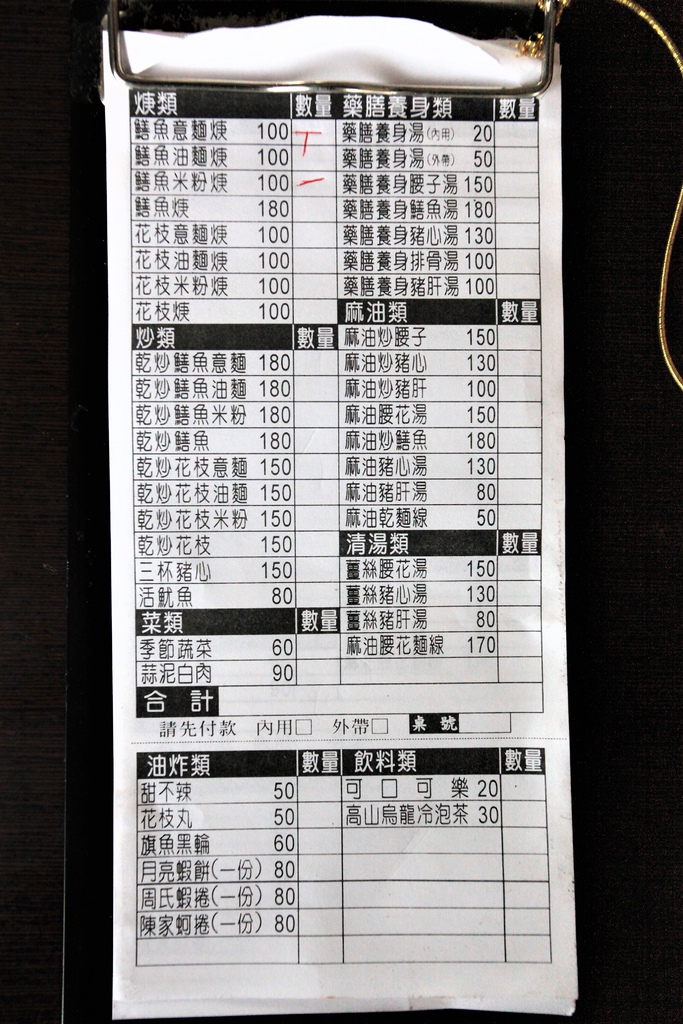 焿類 數量
鱔魚意麵焿 100
鱔魚油麵焿 100
鱔魚米粉焿 100
鱔魚焿 180
花枝意麵焿 100
花枝油麵焿 100
花枝米粉焿 100
花枝焿 100
炒類 數量
乾炒鱔魚意麵 180
乾炒鱔魚油麵 180
乾炒鱔魚米粉 180
乾炒鱔魚 180
乾炒花枝意麵 150
乾炒花枝油麵 150
乾炒花枝米粉 150
乾炒花枝 150
三杯豬心 150
活魷魚 80
菜類 數量
季節蔬菜 60
蒜泥白肉 90
藥膳養身類 數量
藥膳養身湯(內用) 20
藥膳養身湯(外帶) 50
藥膳養身腰子湯 150
藥膳養身鱔魚湯 180
藥膳養身豬心湯 130
藥膳養身排骨湯 100
藥膳養身豬肝湯 100
麻油類 數量
麻油炒腰子 150
麻油炒豬心 130
麻油炒豬肝 100
麻油腰花湯 150
麻油炒鱔魚 180
麻油豬心湯 130
麻油豬肝湯 80
麻油乾麵線 50
清湯類 數量
薑絲腰花湯 150
薑絲豬心湯 130
薑絲豬肝湯 80
麻油腰花麵線 170
合計
請先付款 內用□ 外帶□ 桌號
油炸類 數量
甜不辣 50
花枝丸 50
旗魚黑輪 60
月亮蝦餅(一份) 80
周氏蝦捲(一份) 80
陳家蚵捲(一份) 80
飲料類 數量
可口可樂 20
高山烏龍冷泡茶 30